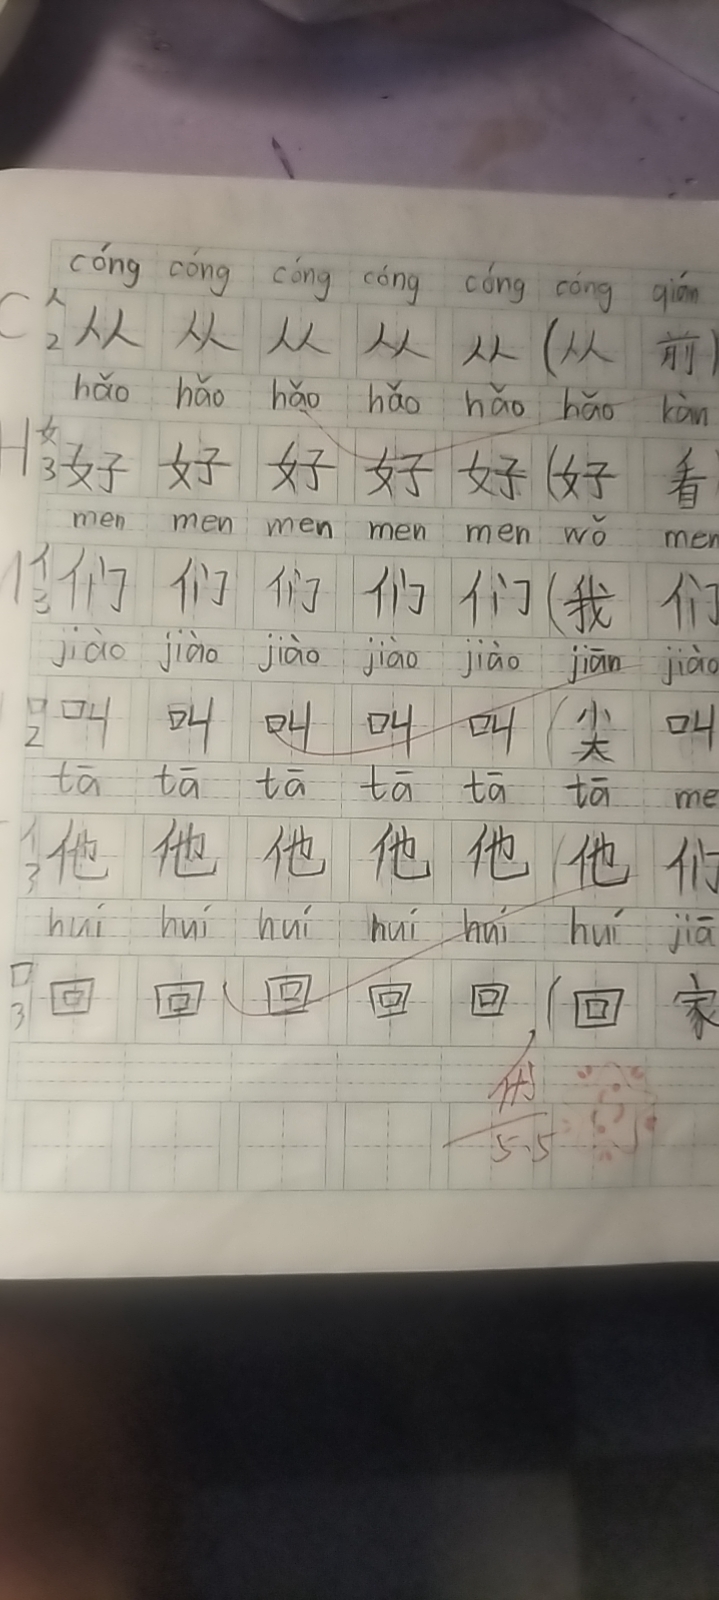 cóng cóng cóng cóng cóng cóng qián
C 人 2 从 从 从 从 从 (从 前)
hǎo hǎo hǎo hǎo hǎo hǎo kàn
H 女 3 好 好 好 好 好 (好 看)
men men men men men wǒ men
亻 3 们 们 们 们 们 (我 们
jiào jiào jiào jiào jiào jiān jiào
口 2 叫 叫 叫 叫 叫 (尖 叫
tā tā tā tā tā tā me
亻 3 他 他 他 他 他 (他 们
huí huí huí huí huí huí jiā
口 3 回 回 回 回 回 (回 家
5.5